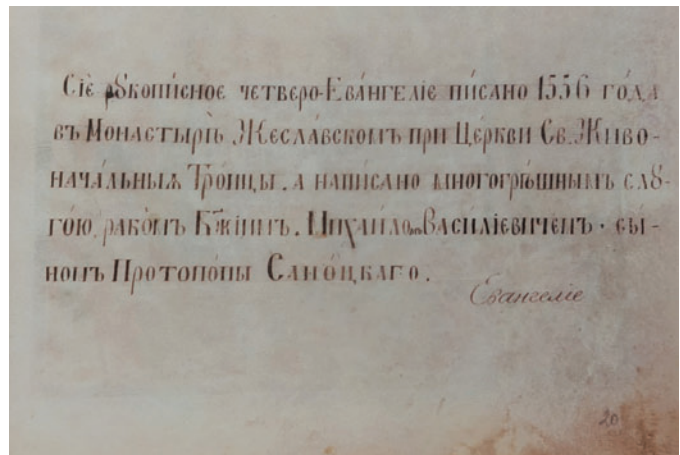 Сїѐ рꙋкопи́сное четверо-Ева́нгелїе пи́сано 1556 го́да
въ Монастырѣ Жесла́вскомъ при Це́ркви Св. Живо-
нача́льныѧ Тро́ицы. а напи́сано многогрѣ́шнымъ слꙋ-
го́ю, рабо́мъ Бж҃іимъ. Миха́йло Васи́лїевичемъ. сы́-
номъ Протопо́пы Сано́цкаго.
Евангелие
20